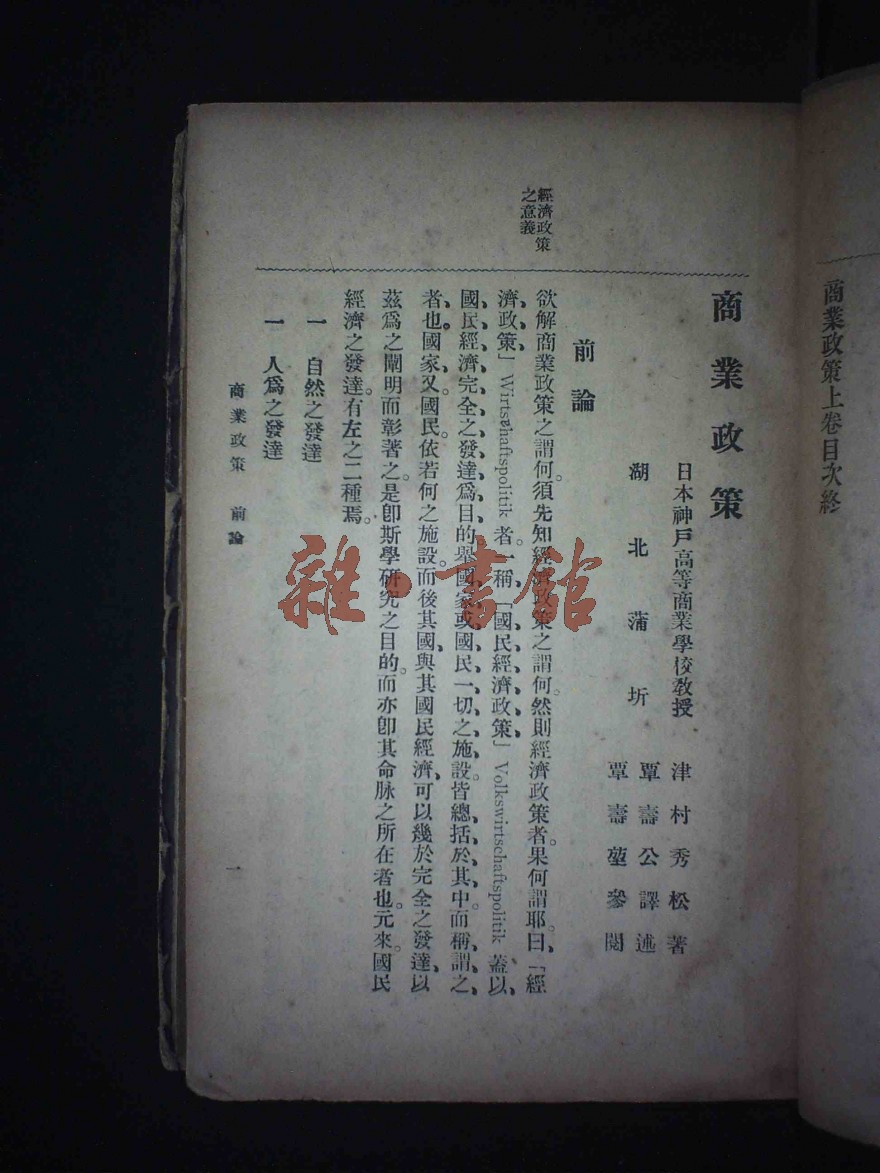 商業政策上卷目次終
商業政策
日本神戶高等商業學校教授 津村秀松著
湖北蒲圻 覃壽公譯述
覃壽堃參閱
前論
經濟政策
之意義
欲解商業政策之謂何。須先知經濟政策之謂何。然則經濟政策者。果何謂耶。曰、「經
濟、政、策、」Wirtschaftspolitik 者。一稱、「國、民、經、濟、政、策、」Volkswirtschaftspolitik 蓋、以、
國、民、經、濟、完、全、之、發、達、爲、目、的、舉、國、家、或、國、民、一、切、之、施、設。皆、總、括、於、其、中。而、稱、謂、之、
者、也。國家、又、國民。依若何之施設。而後其國、與其國民經濟、可以幾於完全之發達、以
茲爲之闡明而彰著之。是卽斯學研究之目的。而亦卽其命脉之所在者也。元來。國民
經濟之發達。有左之二種焉。
一 自然之發達
一 人爲之發達
商業政策 前論
一
雜·書館